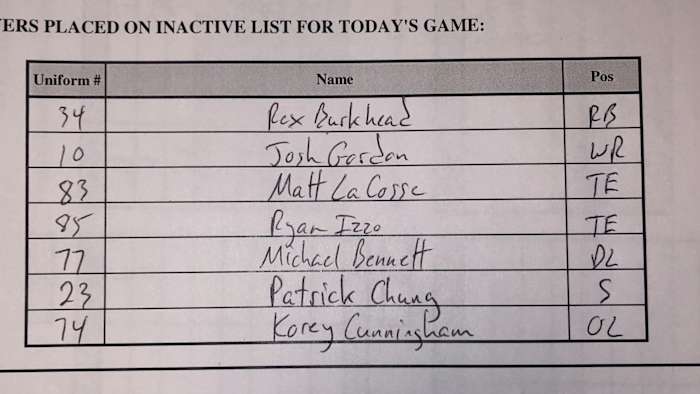 ERS PLACED ON INACTIVE LIST FOR TODAY'S GAME:
Uniform # Name Pos
34 Rex Burkhead RB
10 Josh Gordon WR
83 Matt LaCosse TE
85 Ryan Izzo TE
77 Michael Bennett DL
23 Patrick Chung S
74 Korey Cunningham OL